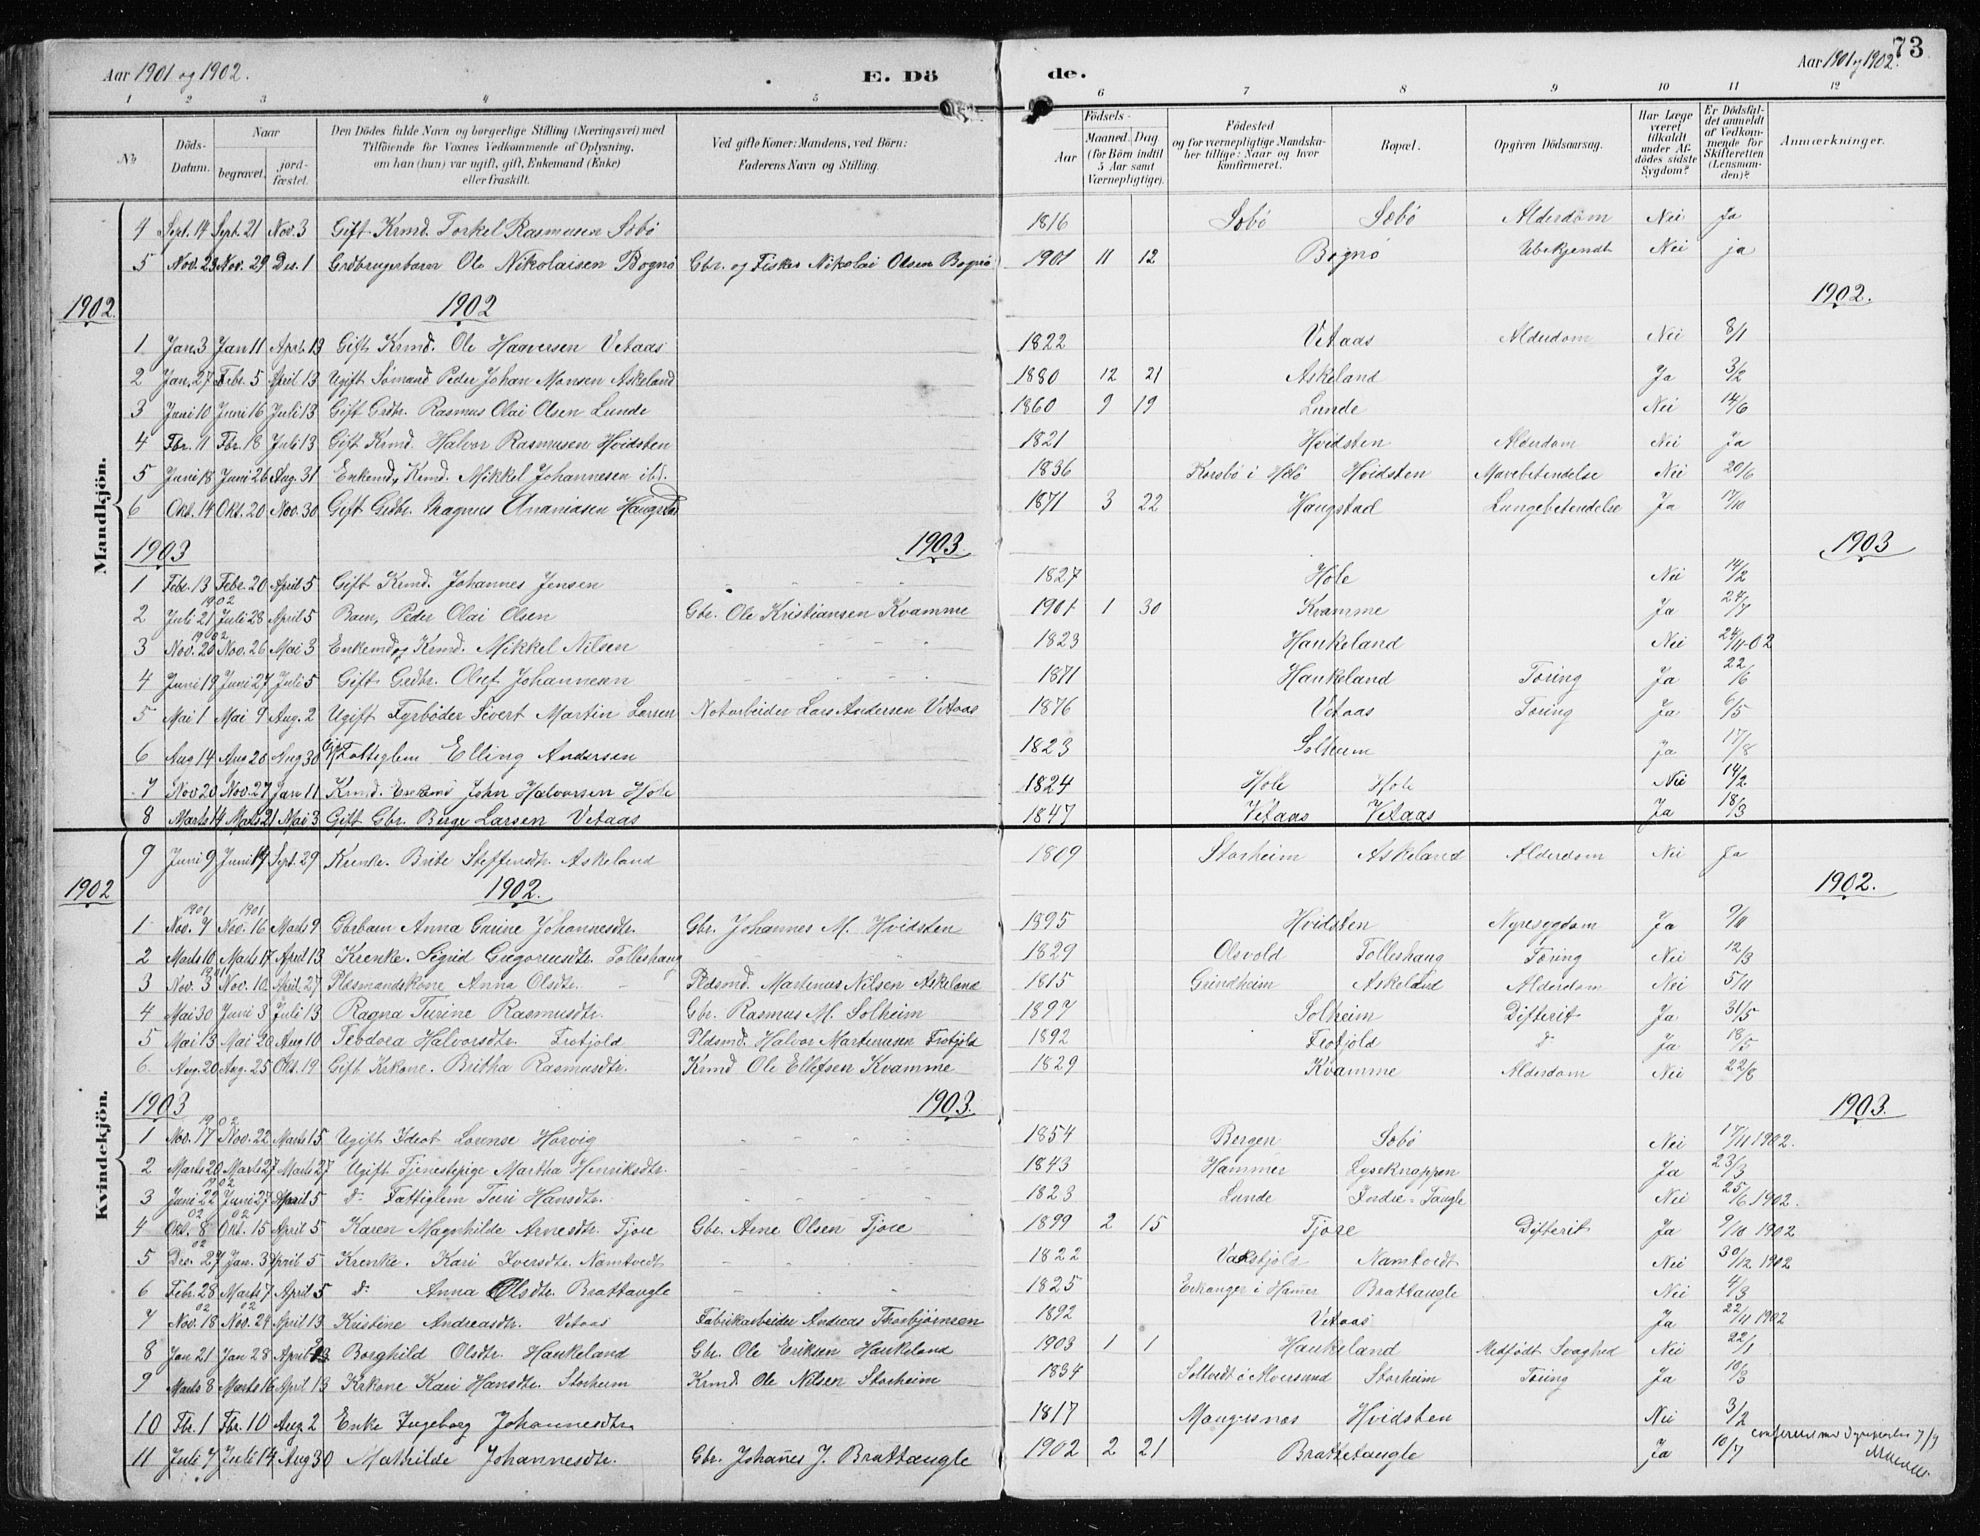 Aar 1901 og 1902.
E. Dö
de.
Aar 1901 og 1902.
73
1 2 3 4 5 6 7 8 9 10 11 12
No
Döds-Datum.
Naar
begravet.
jord-fæstet.
Den Dödes fulde Navn og borgerlige Stilling (Næringsvei) med
Tilföiende for Voxnes Vedkommende af Oplysning,
om han (hun) var ugift, gift, Enkemand (Enke)
eller fraskilt.
Ved gifte Koner: Mandens, ved Börn:
Faderens Navn og Stilling.
Födsels-
Aar
Maaned. Dag
(for Börn indtil
5 Aar samt
Værnepligtige).
Födested
og for værnepligtige Mandska-
ber tillige: Naar og hvor
konfirmeret.
Bopæl.
Opgiven Dödsaarsag.
Har Læge
været
tilkaldt
under Af-
dödes sidste
Sygdom?
Er Dödsfal-
det anmeldt
af Vedkom-
mende for
Skifteretten
(Lensman-
den)?
Anmærkninger.
Mandkjön.
4 Sept. 14 Sept. 21 Nov. 3 Gift Krmd. Torkel Rasmusen Sæbö 1816 Sæbö Sæbö Alderdom Nei Ja
5 Nov. 23 Nov. 29 Des. 1 Grdbrugerbarn Ole Nikolaisen Bognö Gbr. og Fisker Nikolai Olsen Bognö 1901 11 12 Bognö Ubekjendt Nei ja
1902. 1902 1902.
1 Jan. 3 Jan 11 April 13 Gift Krmd. Ole Haaversen Vetaas 1822 Vetaas Alderdom Nei 8/1
2 Jan. 27 Febr. 5 April 13 Ugift Sömand Peder Johan Monsen Askeland 1880 12 21 Askeland Ja 3/2
3 Juni 10 Juni 16 Juli 13 Gift Grdbr. Rasmus Olai Olsen Lunde 1860 9 19 Lunde Nei 14/6
4 Fbr. 11 Fbr. 18 Juli 13 Gift Krmd. Halvor Rasmusen Hvidsten 1821 Hvidsten Alderdom Nei Ja
5 Juni 18 Juni 26 Aug. 31 Enkemd. Krmd. Mikkel Johannesen ibd. 1836 Korsbö i Hdö Hvidsten Mavebetendelse Nei 20/6
6 Okt. 14 Okt. 20 Nov. 30 Gift Grdbr. Magnus Ananiasen Haugstad 1871 3 22 Haugstad Lungebetendelse Ja 17/10
1903 1903. 1903
1 Febr. 13 Febr. 20 April 5 Gift Krmd. Johannes Jensen 1827 Hole Nei 14/2
1902
2 Juli 21 Juli 28 April 5 Barn, Peder Olai Olsen Gbr. Ole Kristiansen Kvamme 1901 1 30 Kvamme Ja 24/7
1902
3 Nov. 20 Nov. 26 Mai 3 Enkemd. Krmd. Mikkel Nilsen 1823 Haukeland Nei 24/11-02
4 Juni 19 Juni 27 Juli 5 Gift Grdbr. Oluf Johannesen 1871 Haukeland Tæring Ja 22/6
5 Mai 1 Mai 9 Aug. 2 Ugift Fyrböder Sivert Martin Larsen Notarbeider Lars Andersen Vetaas 1876 Vetaas Tæring Ja 6/5
6 Aug 14 Aug 20 Aug 30 Fattiglem Elling Andersen 1823 Solheim ja 17/8
7 Nov 20 Nov. 27 Jan 11 Krmd. Enkemd John Halvorsen Hole 1824 Hole Hole Nei 14/2
8 Marts 14 Marts 21 Mai 3 Gift Gbr. Berge Larsen Vetaas 1847 Vetaas Vetaas Ja 18/3
Kvindekjön.
9 Juni 9 Juni 19 Sept. 29 Krenke. Brite Steffensdtr. Askeland 1809 Storheim Askeland Alderdom Nei Ja
1902 1902. 1902.
1901 1901
1 Nov. 7 Nov. 16 Marts 9 Gbrbarn Anna Gurine Johannesdtr. Gbr. Johannes M. Hvidsten 1895 Hvidsten Nyresygdom Ja 9/11
2 Marts 10 Marts 17 April 13 Krenke. Sigrid Gregoriusdtr. Tolleshaug 1829 Olsvold Tolleshaug Tæring Nei 12/3
1901
3 Nov. 3 Nov. 10 April 27 Pldsmandskone Anna Olsdtr. Pldsmd. Martinus Nilsen Askeland 1815 Grindheim Askeland Alderdom Nei 5/11
4 Mai 30 Juni 3 Juli 13 Ragna Turine Rasmusdtr. Gbr. Rasmus M. Solheim 1897 Solheim Difterit Ja 31/5
5 Mai 13 Mai 20 Aug 10 Teodora Halvorsdtr. Frotjold Pldsmd. Halvor Martinusen Frotjold 1892 Frotjold do Ja 18/5
6 Aug. 20 Aug. 25 Okt. 19 Gift Krkone. Britha Rasmusdtr. Krmd Ole Ellefsen Kvamme 1829 Kvamme Alderdom Nei 22/8
1903 1903. 1903.
1902
1 Nov. 17 Nov. 22 Marts 15 Ugift Ideot Lorense Horvig 1854 Bergen Sæbö Nei 17/11 1902.
2 Marts 20 Marts 27 Marts 27 Ugift Tjenestepige Martha Henriksdtr. 1843 Hammer Lyseknappen Ja 23/3
1902
3 Juni 22 Juni 27 April 5 do Fattiglem Turi Hansdtr. 1823 Lunde Indre-Taugle Nei 25/6 1902.
02 02
4 Okt. 8 Okt. 15 April 5 Karen Magnhilde Arnesdtr. Tjore Gbr. Arne Olsen Tjore 1899 2 15 Tjore Difterit Ja 9/10 1902
02
5 Des. 27 Jan. 3 April 5 Krenke. Kari Iversdtr. Namtvedt 1822 Vakstjold Namtvedt Nei 30/12 1902
6 Febr. 28 Marts 7 April 5 do Anna Olsdtr. Brattaugle 1825 Eikanger i Hamer Brattaugle Nei 4/3
02 02
7 Nov. 18 Nov. 24 April 13 Kristine Andreasdtr. Vetaas Fabrikarbeider Andreas Thorbjörnsen 1892 Vetaas Ja 22/11 1902
8 Jan 21 Jan 28 April 13 Borghild Olsdtr. Haukeland Gbr. Ole Eriksen Haukeland 1903 1 1 Haukeland Medfödt Svaghed Nei 22/1
9 Marts 8 Marts 16 April 13 Krkone Kari Hansdtr. Storheim Krmd. Ole Nilsen Storheim 1834 Soltvedt i Alversund Storheim Tæring Ja 10/3
10 Fbr. 1 Fbr. 10 Aug. 2 Enke Ingeborg Johannesdtr. 1817 Mangersnes Hvidsten Nei 3/2
11 Juli 7 Juli 14 Aug 30 Mathilde Johannesdtr. Gbr. Johanes J. Brattaugle 1902 2 21 Brattetaugle Ja 10/7